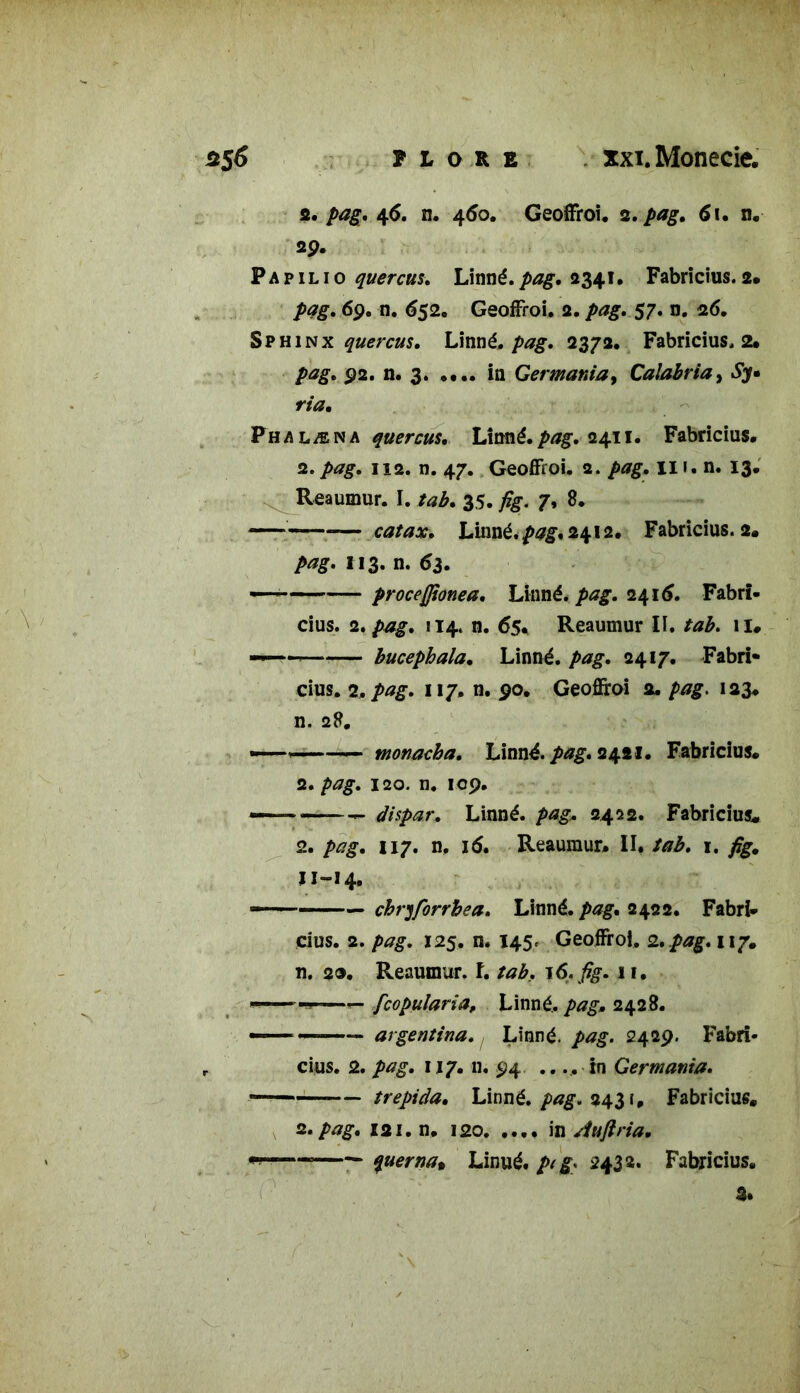 256 FLORE XXI. Monecie.
2. pag. 46. n. 460. Geoffroi. 2. pag. 61. n.
29.
PAPILIO quercus. Linné. pag. 2341. Fabricius. 2.
pag. 69. n. 652. Geoffroi. 2. pag. 57. n. 26.
SPHINX quercus. Linné. pag. 2372. Fabricius. 2.
pag. 92. n. 3. .... in Germania, Calabria, Sy-
ria.
PHALÆNA quercus. Linné. pag. 2411. Fabricius.
2. pag. 112. n. 47. Geoffroi. 2. pag. 111. n. 13.
Reaumur. I. tab. 35. fig. 7, 8.
——— catax. Linné. pag. 2412. Fabricius. 2.
pag. 113. n. 63.
——— proceſſionea. Linné. pag. 2416. Fabri-
cius. 2. pag. 114. n. 65. Reaumur II. tab. 11.
——— bucephala. Linné. pag. 2417. Fabri-
cius. 2. pag. 117. n. 90. Geoffroi 2. pag. 123.
n. 28.
——— monacha. Linné. pag. 2421. Fabricius.
2. pag. 120. n. 109.
——— dispar. Linné. pag. 2422. Fabricius.
2. pag. 117. n. 16. Reaumur. II. tab. 1. fig.
11-14.
——— chryſorrhea. Linné. pag. 2422. Fabri-
cius. 2. pag. 125. n. 145. Geoffroi. 2. pag. 117.
n. 20. Reaumur. I. tab. 16. fig. 11.
——— ſcopularia, Linné. pag. 2428.
——— argentina. Linné. pag. 2429. Fabri-
cius. 2. pag. 117. n. 94 .... in Germania.
——— trepida. Linné. pag. 2431, Fabricius.
2. pag. 121. n. 120. .... in Auſtria.
——— querna. Linué. ptg. 2432. Fabricius.
2.